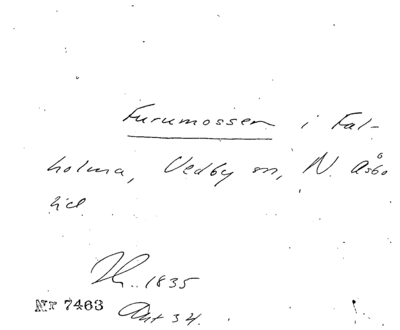 Furumossen i Fal-
holma, Vedby sn, N. Åsbo
hd
1835
Nr 7463 Ant 34.